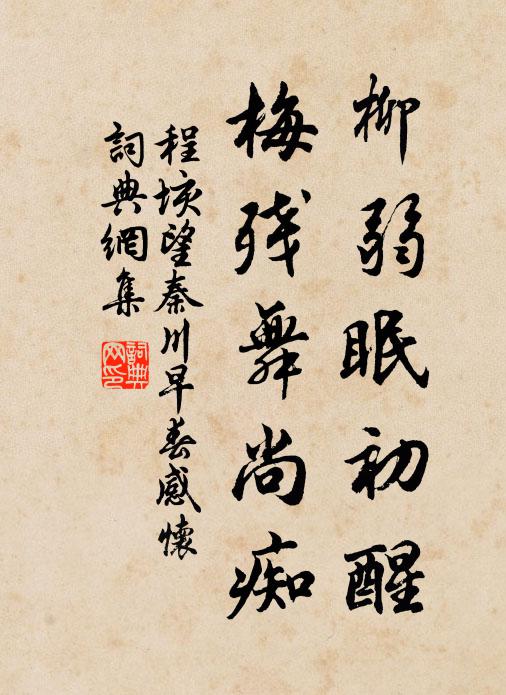 柳弱眠初醒
梅残舞尚痴
程垓望秦川早春感懷
詞典網集
詞典网印